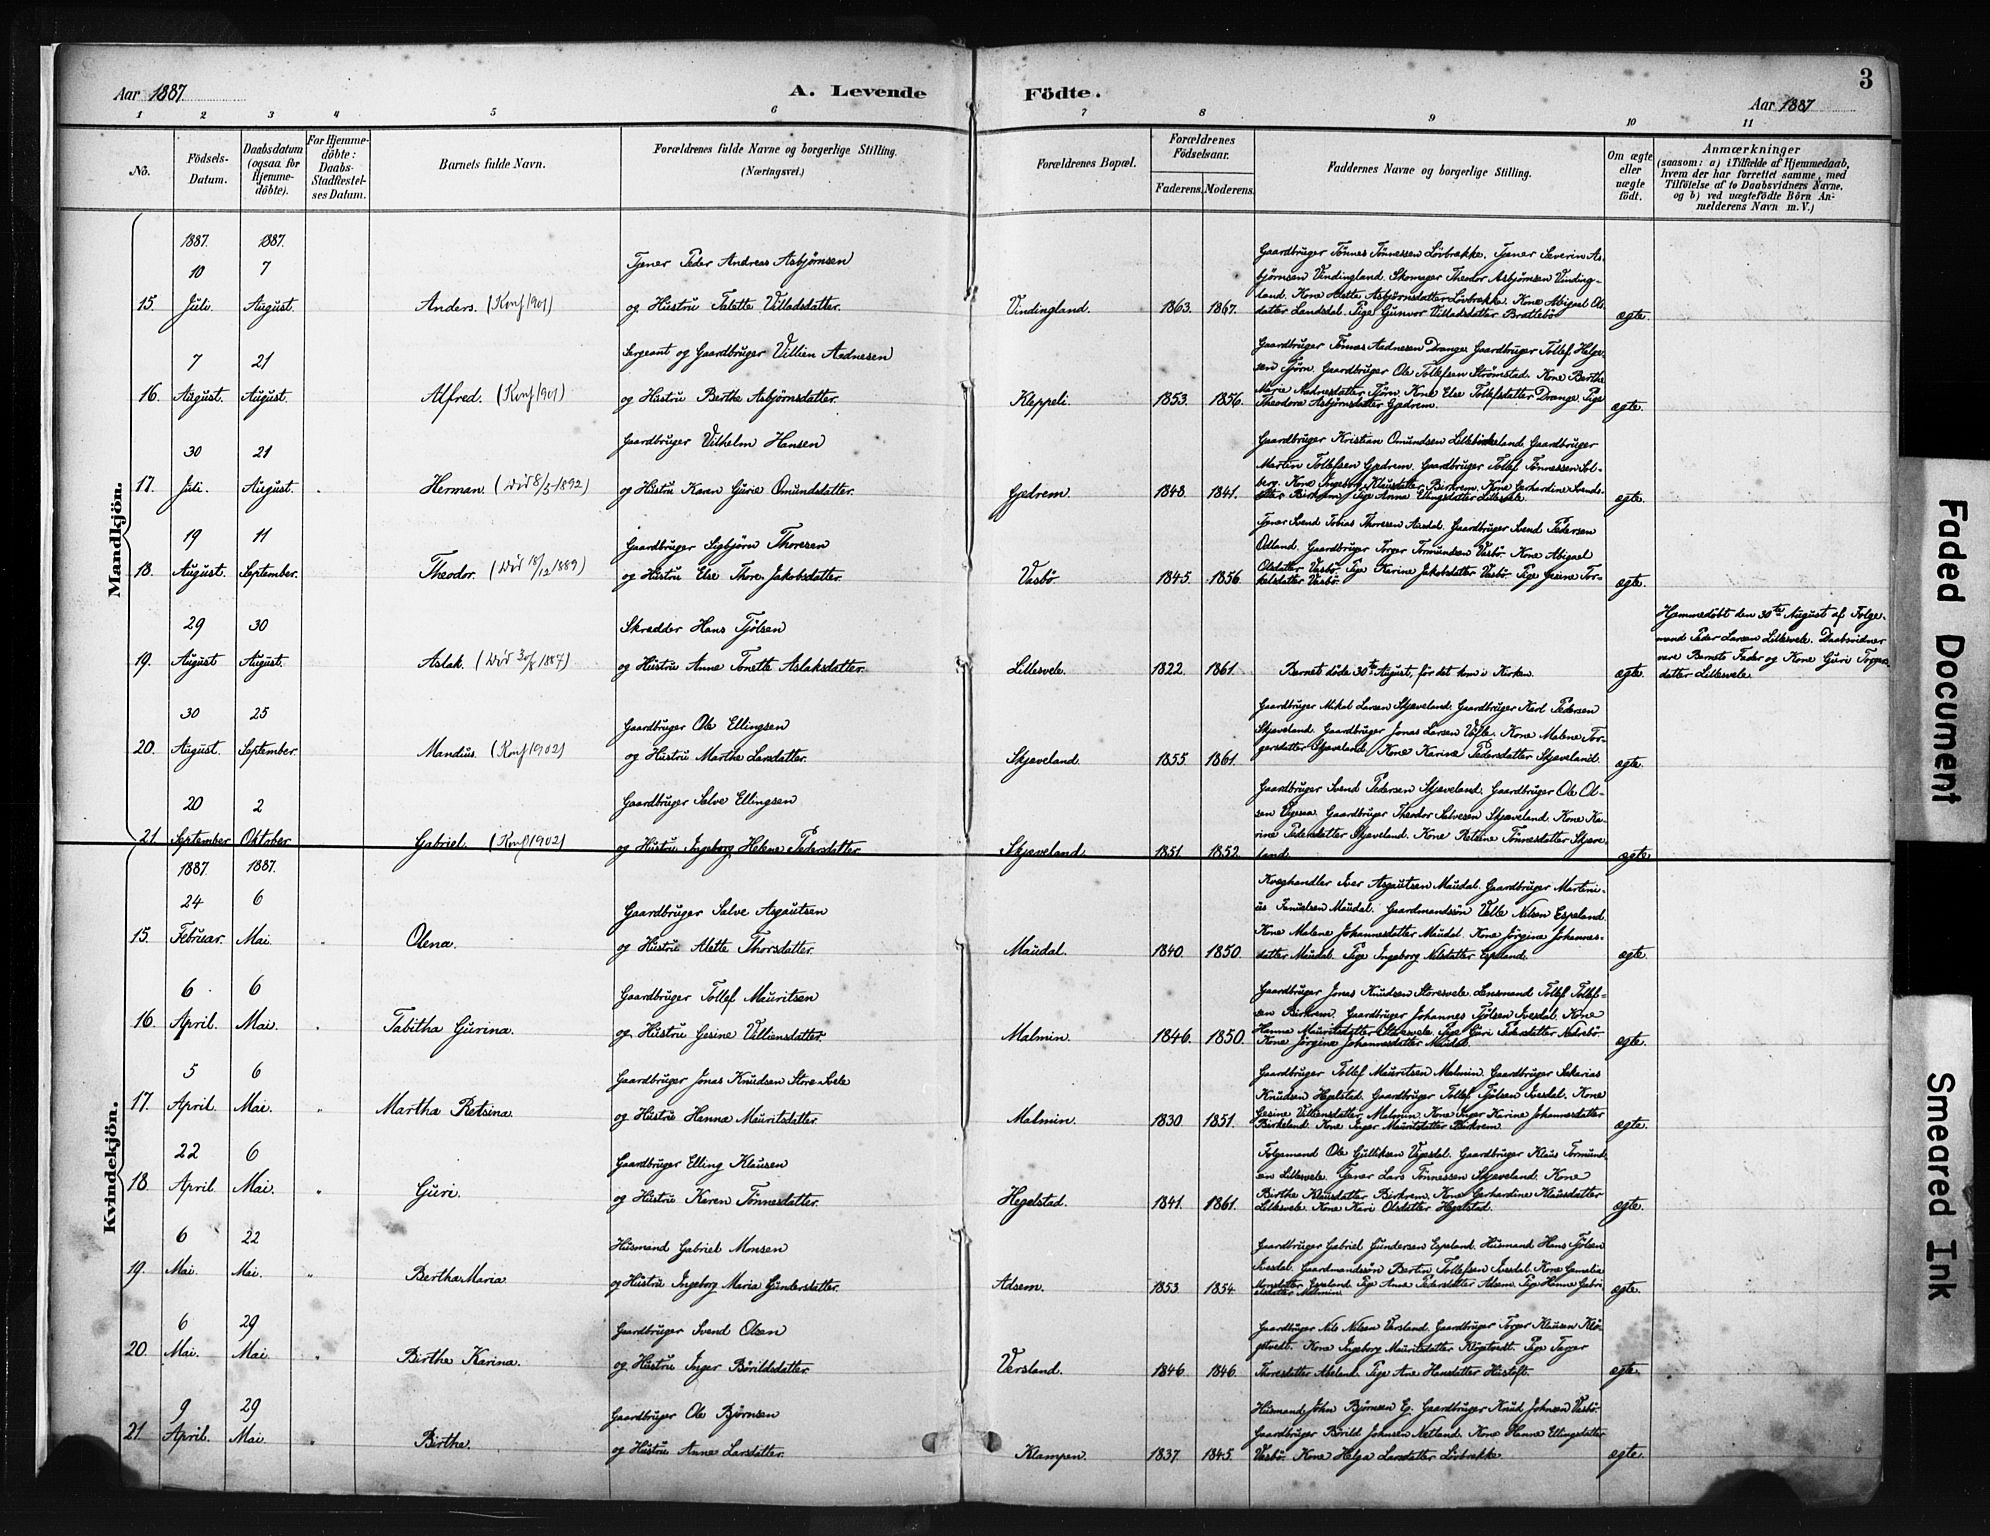 3
Aar 1887.
A. Levende
Födte.
Aar 1887
1 2 3 4 5 6 7 8 9 10 11
No.
Födsels-
Datum.
Daabsdatum
(ogsaa for
Hjemme-
döbte).
For Hjemme-
döbte:
Daabs-
Stadfæstel-
ses Datum.
Barnets fulde Navn.
Forældrenes fulde Navne og borgerlige Stilling.
(Næringsvei.)
Forældrenes Bopæl.
Forældrenes
Födselsaar.
Faderens. Moderens.
Faddernes Navne og borgerlige Stilling.
Om ægte
eller
uægte
födt.
Anmærkninger
(saasom: a) i Tilfælde af Hjemmedaab,
hvem der har forrettet samme, med
Tilföielse af to Daabsvidners Navne,
og b) ved uægtefödte Börn An-
melderens Navn m. V.)
Mandkjön.
1887. 1887.
10 7
15. Juli. August. Anders. (Konf 1901)
Tjener Peder Andreas Asbjørnsen
og Hustru Talette Villadsdatter.
Vindingland. 1863. 1867.
Gaardbruger Tønnes Tønnessen Løvbrække. Tjener Severin As-
bjørnsen Vindingland. Skomager Theodor Asbjørnsen Vinding-
land. Kone Alette Asbjørnsdatter Løvbrække. Kone Abigael Ols-
datter Landsdal. Pige Gunvor Villadsdatter Brattebø
ægte.
7 21
16. August. August. Alfred. (Konf 1901)
Sergeant og Gaardbruger Villien Aadnesen
og Hustru Berthe Asbjørnsdatter.
Kleppeli. 1853. 1856.
Gaardbruger Tønnes Aadnesen Drange. Gaardbruger Tollef Helge-
sen Tjørn. Gaardbruger Ole Tollefsen Strømstad. Kone Berthe
Marie Aadnesdatter Tjørn. Kone Else Tollefsdatter Drange. Pige
Theodora Asbjørnsdatter Gjedrem.
ægte.
30 21
17. Juli. August. Herman. (Død 8/5 1892)
Gaardbruger Vilhelm Hansen
og Hustru Karen Gurie Omundsdatter.
Gjedrem. 1848. 1841.
Gaardbruger Kristian Omundsen Lillebirkeland. Gaardbruger
Martin Tollefsen Gjedrem. Gaardbruger Tollef Tønnessen Sol-
berg. Kone Ingeborg Klausdatter Birkrem. Kone Gerhardine Svends-
datter Birkrem. Pige Anne Ellingsdatter Lillesvele.
ægte.
19 11
18. August. September. Theodor. (Død 18/12 1889)
Gaardbruger Sigbjørn Thoresen
og Hustru Else Thore Jakobsdatter.
Vasbø 1845 1856
Tjener Svend Tobias Thoresen Aasdal. Gaardbruger Svend Pedersen
Odland. Gaardbruger Torger Tormundsen Vasbø. Kone Abigael
Olsdatter Vasbø. Pige Karine Jakobsdatter Vasbø. Pige Gesine Tor-
kelsdatter Vasbø.
ægte.
29 30
19. August August. Aslak. (Død 30/8 1887)
Skrædder Hans Tjølsen
og Hustru Anne Tonette Aslaksdatter.
Lillesvele. 1822. 1861.
Barnet døde 30te August, før det kom i Kirken.
ægte.
Hjemmedøbt den 30te August af Følge-
mand Peder Larsen Lillesvele. Daabsvidner
vare Barnets Fader og Kone Guri Torges-
datter Lillesvele.
30 25
20. August. September. Mandus. (Konf 1902)
Gaardbruger Ole Ellingsen
og Hustru Marthe Larsdatter.
Skjæveland. 1855. 1861.
Gaardbruger Mikal Larsen Skjæveland. Gaardbruger Karl Pedersen
Skjæveland. Gaardbruger Jonas Larsen Vasle. Kone Malene Tor-
gersdatter Skjæveland. Kone Karine Pedersdatter Skjæveland.
ægte.
20 2
21. September Oktober Gabriel. (Konf 1902)
Gaardbruger Salve Ellingsen
og Hustru Ingeborg Helene Pedersdatter
Skjæveland 1851. 1852.
Gaardbruger Svend Pedersen Skjæveland. Gaardbruger Ole Ol-
sen Vigesaa. Gaardbruger Theodor Salvesen Skjæveland. Kone Ka-
rine Pedersdatter Skjæveland. Kone Retsine Tønnesdatter Skjæve-
land.
ægte.
Kvindekjön.
1887. 1887.
24 6
15. Februar. Mai. " Olena.
Gaardbruger Salve Asgautsen
og Hustru Alette Thorsdatter.
Maudal. 1840. 1850.
Kvæghandler Iver Asgautsen Maudal. Gaardbruger Martini-
us Knudsen Maudal. Gaardmandssøn Valle Nilsen Espeland.
Kone Malene Johannesdatter Maudal. Kone Jørgine Johannes-
datter Maudal. Pige Ingeborg Nilsdatter Espeland.
ægte.
6 6
16. April. Mai. " Tabitha Gurina.
Gaardbruger Tollef Mauritsen
og Hustru Gesine Villiensdatter.
Malmin. 1846. 1850.
Gaardbruger Jonas Knudsen Storesvele. Lensmand Tollef Tollef-
sen Birkrem. Gaardbruger Johannes Tjølsen Ivesdal. Kone
Hanna Mauritsdatter Storesvele. Pige Guri Pedersdatter
Kone Jørgine Johannesdatter Maudal.
ægte.
5 6
17. April. Mai. " Martha Retsina.
Gaardbruger Jonas Knudsen Store Svele
og Hustru Hanna Mauritsdatter.
Malmin. 1830 1851.
Gaardbruger Tollef Mauritsen Malmin. Gaardbruger Sakarias
Knudsen Hegelstad. Gaardbruger Tollef Tjølsen Ivesdal. Kone
Gesine Villiensdatter Malmin. Kone Inger Karine Johannesdatter
Birkeland. Kone Inger Mauritsdatter Birkrem.
ægte.
22 6
18. April. Mai. " Guri.
Gaardbruger Elling Klausen
og Hustru Karen Tønnesdatter.
Hegelstad. 1841. 1861.
Følgemand Ole Gulliksen Vegesdal. Gaardbruger Klaus Tormund-
sen Lillesvele. Tjener Lars Tønnessen Skjæveland. Kone
Birthe Klausdatter Birkrem. Kone Gerhardine Klausdatter
Lillesvele. Kone Kari Olsdatter Hegelstad.
ægte.
6 22
19. Mai. Mai. " Bertha Maria.
Husmand Gabriel Monsen
og Hustru Ingeborg Maria Gundersdatter.
Adsem. 1853 1854
Gaardbruger Gabriel Gundersen Espeland. Husmand Hans Tjølsen
Ivesdal. Gaardmandssøn Bertin Tollefsen Ivesdal. Kone Cornelia
Monsdatter Espeland. Pige Anna Pedersdatter Adsem. Pige Hanne Gabri-
elsdatter Malmin.
ægte.
6 29
20. Mai. Mai. " Birthe Karina.
Gaardbruger Svend Olsen
og Hustru Inger Bårildsdatter.
Versland. 1846 1846.
Gaardbruger Nils Nilsen Versland. Gaardbruger Torger Klausen Klø-
getvedt. Kone Ingeborg Mauritsdatter Kløgetvedt. Pige Torger
Thoresdatter Aseland. Pige Ane Hansdatter Hustoft.
ægte.
9 29
21. April. Mai. " Birtha.
Gaardbruger Ole Bjørnsen
og Hustru Anne Larsdatter.
Klampen. 1837. 1845.
Husmand John Bjørnsen Eg. Gaardbruger Knud Johnsen Vasbø.
Gaardbruger Bårild Johnsen Netland. Kone Hanne Ellingsdatter
Vasbø. Kone Helga Larsdatter Løvbrække.
ægte.
Faded Document
Smeared Ink